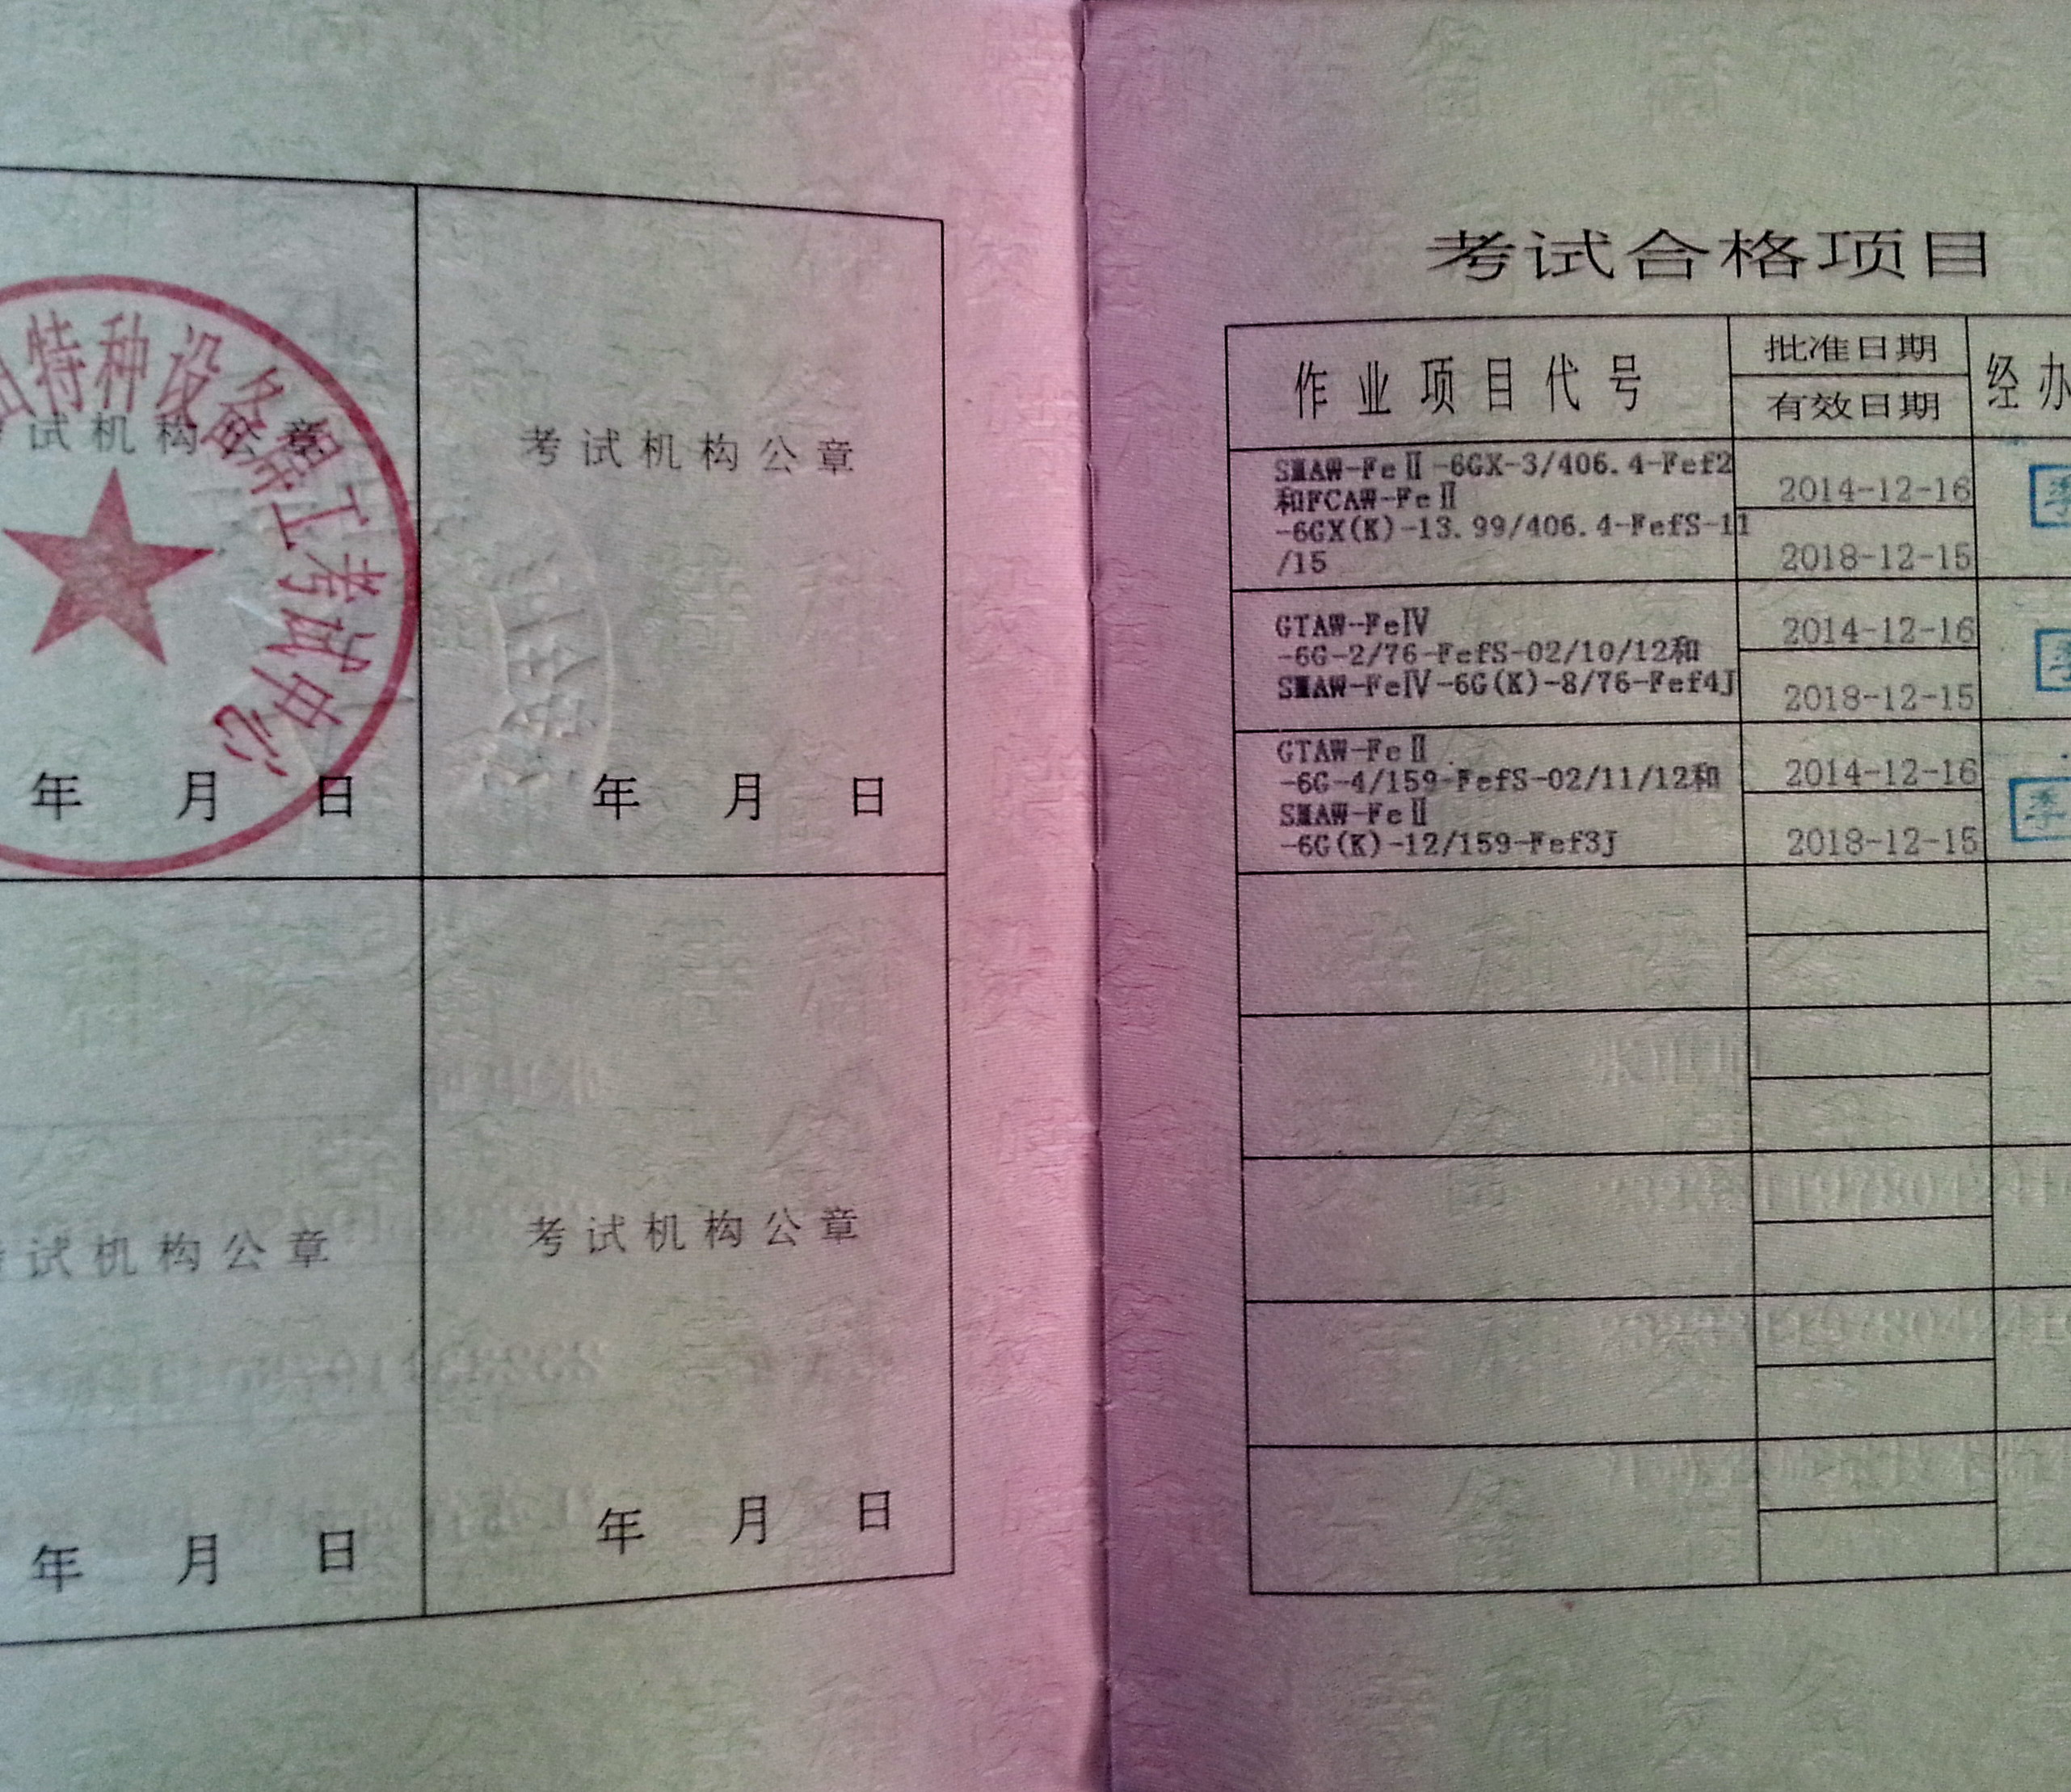 特种设备焊工考试中心
试机构公章
考试机构公章
年 月 日
年 月 日
试机构公章
考试机构公章
年 月 日
年 月 日
考试合格项目
作业项目代号
批准日期
有效日期
经办
SMAW-FeⅡ-6GX-3/406.4-Fef2
和FCAW-FeⅡ
-6GX(K)-13.99/406.4-FefS-11
/15
2014-12-16
2018-12-15
李
GTAW-FeⅣ
-6G-2/76-FefS-02/10/12和
SMAW-FeⅣ-6G(K)-8/76-Fef4J
2014-12-16
2018-12-15
GTAW-FeⅡ
-6G-4/159-FefS-02/11/12和
SMAW-FeⅡ
-6G(K)-12/159-Fef3J
2014-12-16
2018-12-15
李